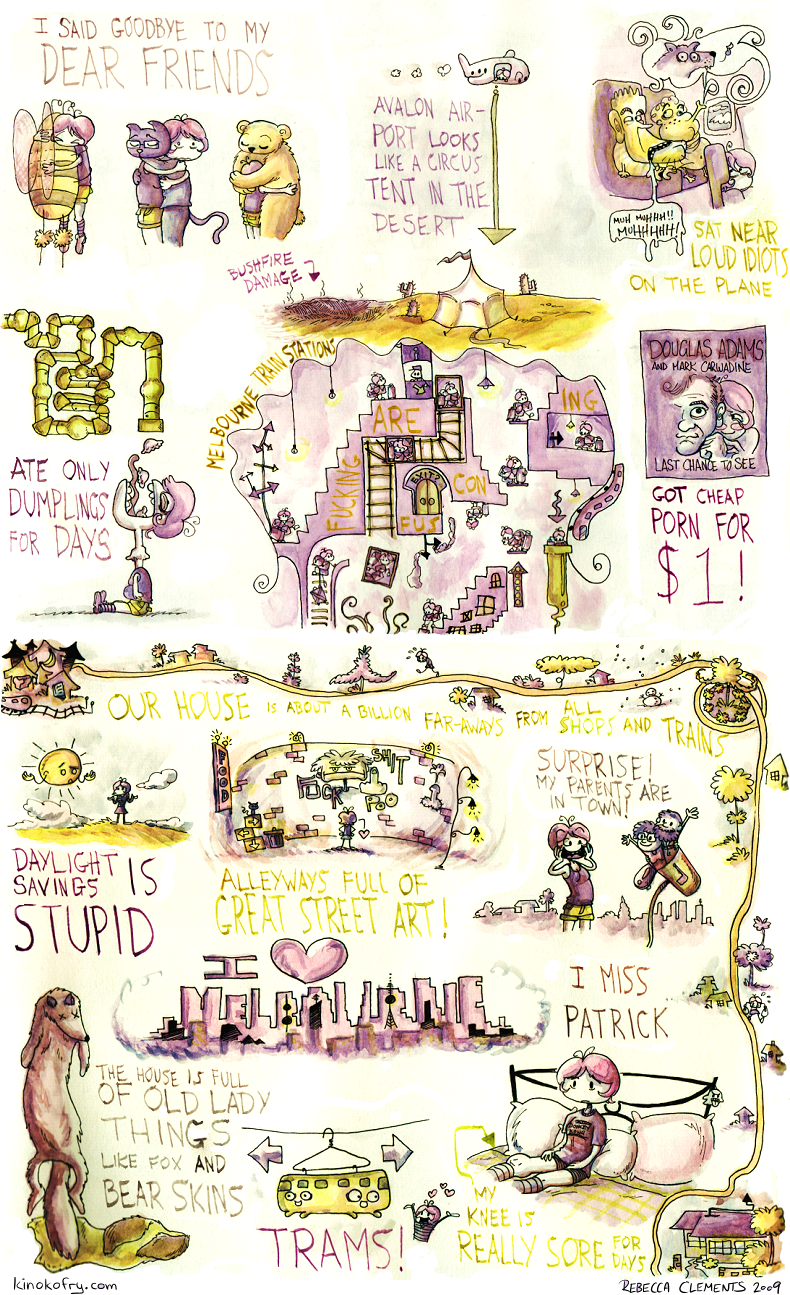 I SAID GOODBYE TO MY
DEAR FRIENDS
AVALON AIR-
PORT LOOKS
LIKE A CIRCUS
TENT IN THE
DESERT
MUH MUHHH!!
MUHHHHH!
SAT NEAR
LOUD IDIOTS
ON THE PLANE
BUSHFIRE
DAMAGE
MELBOURNE TRAIN STATIONS
ARE
FUCKING
CON
FUS
ING
EXIT?
DOUGLAS ADAMS
AND MARK CARWADINE
LAST CHANCE TO SEE
ATE ONLY
DUMPLINGS
FOR DAYS
GOT CHEAP
PORN FOR
$1!
OUR HOUSE IS ABOUT A BILLION FAR-AWAYS FROM ALL SHOPS AND TRAINS
FOOD
SHIT
FUCK
POO
SURPRISE!
MY PARENTS ARE
IN TOWN!
DAYLIGHT
SAVINGS IS
STUPID
ALLEYWAYS FULL OF
GREAT STREET ART!
I
MELBOURNE
I MISS
PATRICK
THE HOUSE IS FULL
OF OLD LADY
THINGS
LIKE FOX AND
BEAR SKINS
TRAMS!
MY
KNEE IS
REALLY SORE FOR
DAYS
kinokofry.com
REBECCA CLEMENTS 2009